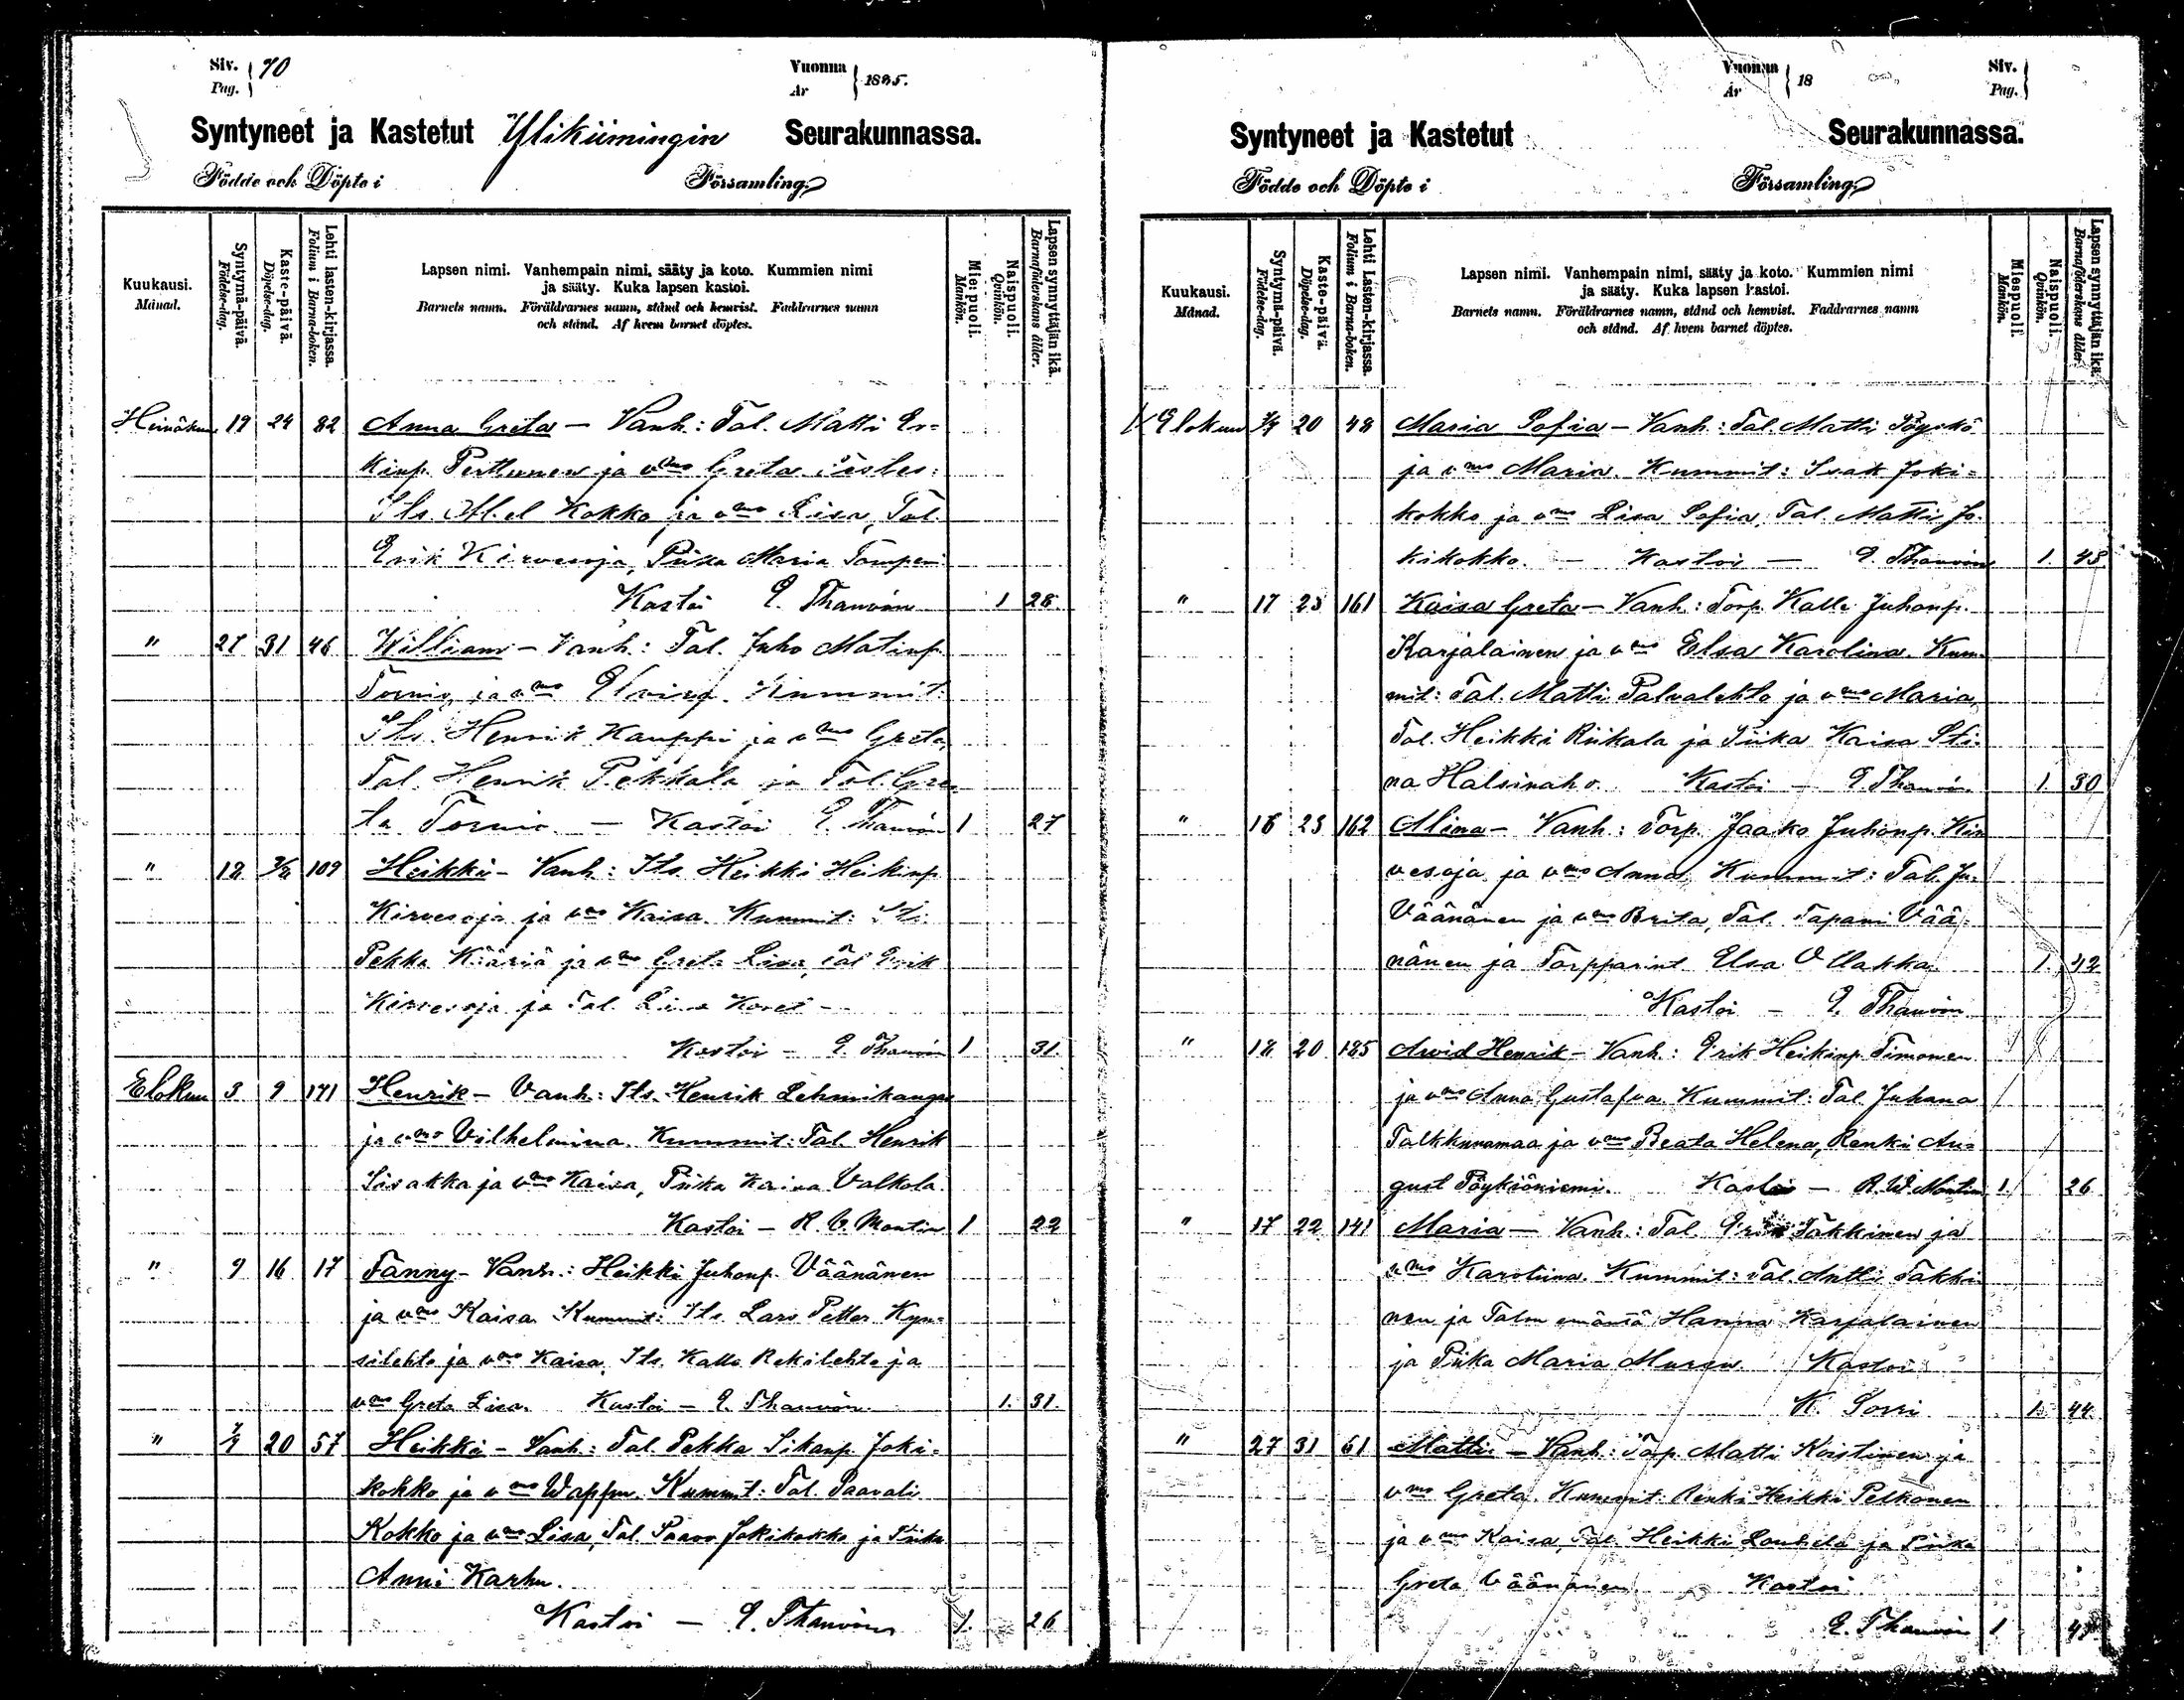 Siv. Pag. 70
Vuonna År 1895.
Syntyneet ja Kastetut Ylikiimingin Seurakunnassa.
Födde och Döpte i Församling.
Kuukausi. Månad.
Syntymä-päivä. Födelse-dag.
Kaste-päivä. Döpelse-dag.
Lehti lasten-kirjassa. Folium i Barna-boken.
Lapsen nimi. Vanhempain nimi, sääty ja koto. Kummien nimi
ja sääty. Kuka lapsen kastoi.
Barnets namn. Föräldrarnes namn, stånd och hemvist. Faddrarnes namn
och stånd. Af hvem barnet döptes.
Miespuoli. Mankön.
Naispuoli. Qvinkön.
Lapsen synnyttäjän ikä. Barnaföderskans ålder.
Heinäkuu 19 24 82 Anna Greta – Vanh: Tal. Matti Er=
kinp. Perttunen ja vmo Greta
Its. Kokko ja vmo Lisa, Tal.
Erik Kirvesoja, Piika Maria Tamper
Kastoi E. Thauvón 1 28
" 27 31 46 William – Vanh: Tal. Juho Matinp.
Tornio ja vmo Elvira. Kummit:
Its. Henrik Kauppi ja vmo Greta,
Tal. Henrik Pekkala ja Tal. Gre
ta Tornio. – Kastoi E. Thauvón 1 27
" 12 109 Heikki – Vanh: Its. Heikki Heikinp.
Kirvesoja ja vmo Kaisa. Kummit: Its.
Pekka Kääriä ja vmo Greta Lisa, Tal Erik
Kirvesoja ja Tal. Lisa
Kastoi – E. Thauvón 1 31.
Elokuu 3 9 171 Henrik – Vanh: Its. Henrik Lehmikangas
ja vmo Vilhelmina. Kummit: Tal. Henrik
ja vmo Kaisa, Piika Kaisa Valkola.
Kastoi – R. V. Montin 1 22
" 9 16 17 Fanny – Vanh.: Heikki Juhonp. Väänänen
ja vmo Kaisa. Kummit: Its. Lars Petter Kyn=
silehto ja vmo Kaisa, Its. Kalle Rekilehto ja
vmo Greta Lisa. Kastoi – E. Thauvón. 1. 31.
" 20 57 Heikki – Vanh: Tal. Pekka Joki=
kokko ja vmo Wappu. Kummit: Tal. Paavali
Kokko ja vmo Lisa, Tal. Paavo Jokikokko ja Piika
Anni Karhu.
Kastoi – E. Thauvón 1. 26
Vuonna År 18
Siv. Pag.
Syntyneet ja Kastetut Seurakunnassa.
Födde och Döpte i Församling.
Kuukausi. Månad.
Syntymä-päivä. Födelse-dag.
Kaste-päivä. Döpelse-dag.
Lehti Lasten-kirjassa. Folium i Barna-boken.
Lapsen nimi. Vanhempain nimi, sääty ja koto. Kummien nimi
ja sääty. Kuka lapsen kastoi.
Barnets namn. Föräldrarnes namn, stånd och hemvist. Faddrarnes namn
och stånd. Af hvem barnet döptes.
Miespuoli. Mankön.
Naispuoli. Qvinkön.
Lapsen synnyttäjän ikä. Barnaföderskans ålder
Elokuu 20 48 Maria Sofia – Vanh: Tal. Matti
ja vmo Maria. Kummit: Isak Joki=
kokko ja vmo Lisa Sofia, Tal. Matti Jo.
kikokko. – Kastoi – E. Thauvón 1. 43
" 17 25 161 Kaisa Greta – Vanh: Torp. Kalle Juhonp.
Karjalainen ja vmo Elsa Karolina. Kum=
mit: Tal. Matti Palvalehto ja vmo Maria,
Tal. Heikki Riikala ja Piika Kaisa Sti=
na Halsinaho. Kastoi – E. Thauvón. 1. 30
" 16 25 162 Alina – Vanh: Torp. Jaako Juhonp. Kir
vesoja ja vmo Anna. Kummit: Tal. Ju.
Väänänen ja vmo Brita, Tal. Tapani Vää=
nänen ja Torpparint. Elsa Ullakka. 1. 42
Kastoi – E. Thauvón
" 18 20 185 Arvid Henrik – Vanh: Erik Heikinp. Timonen
ja vmo Anna Gustafva. Kummit: Tal. Juhana
Talkkunamaa ja vmo Beata Helena, Renki Au=
gust Pöykiöniemi. Kastoi – R. W. Montin 1. 26
" 17 22 141 Maria – Vanh: Tal. Erik Takkinen ja
vmo Karoliina. Kummit: Tal. Antti Takki
nen ja Talon emäntä Hanna Karjalainen
ja Piika Maria Kastoi
K. Sorri 1. 44.
" 27 31 61 Matti – Vanh: Torp. Matti Koistinen ja
vmo Greta. Kummit: Renki Heikki Pelkonen
ja vmo Kaisa, Tal. Heikki Louhela ja Piika
Greta Väänänen Kastoi
E. Thauvón 1